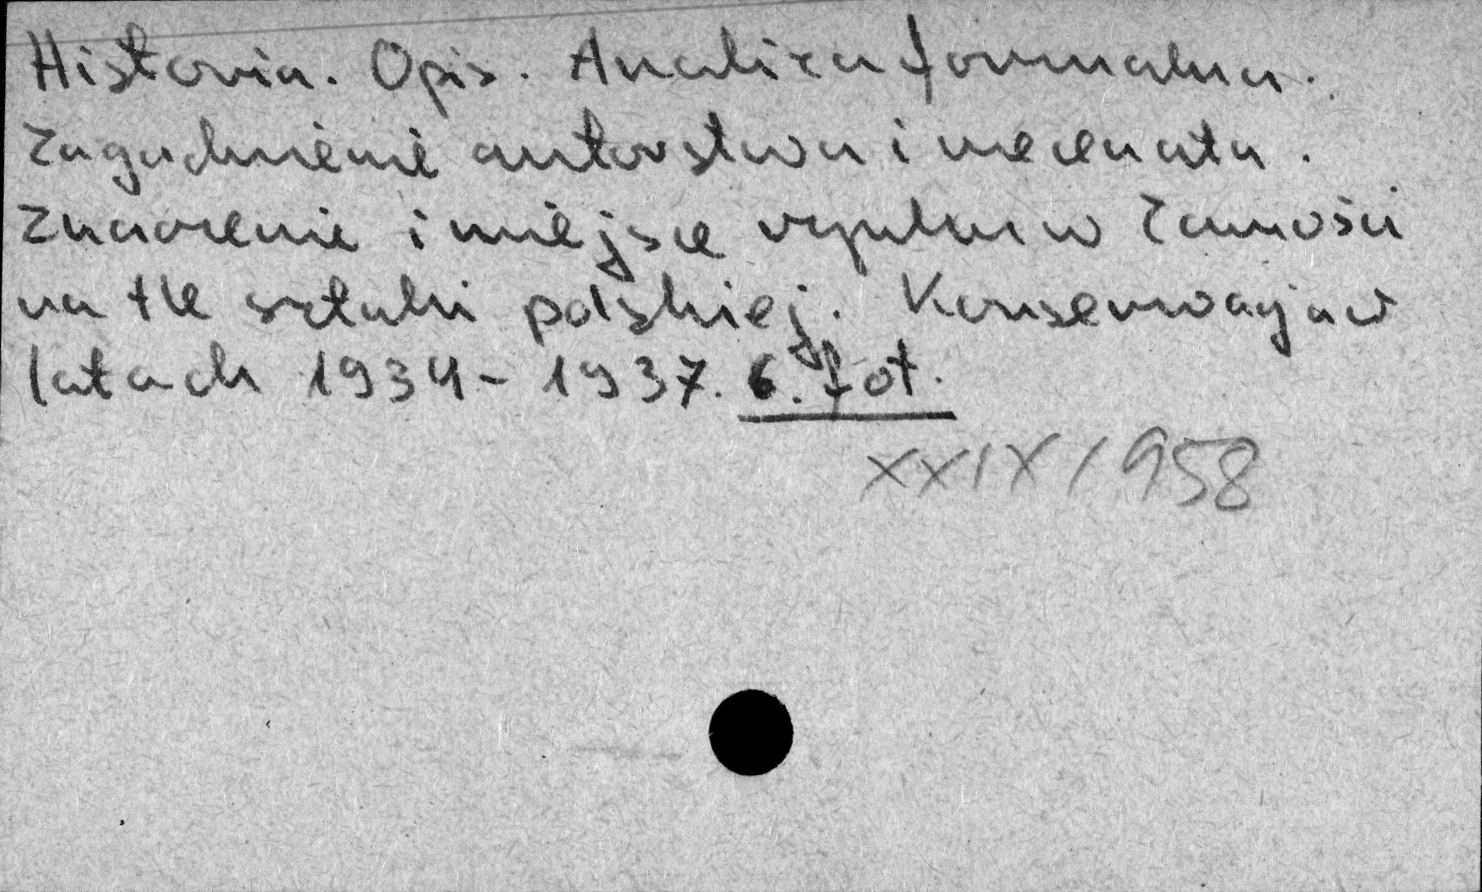 Historia. Opis. Analiza formalna.
Zagadnienie autorstwa i mecenata.
Znaczenie i miejsce w Zamościu
na tle sztuki polskiej. Konserwacja w
latach 1934-1937. 6. fot.
XXIX/958